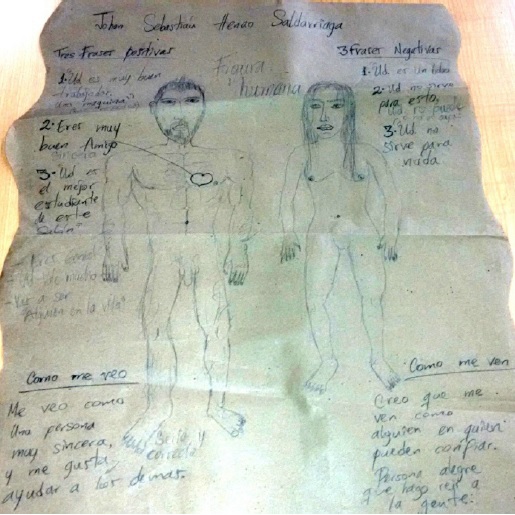 Johan Sebastián Henao Saldarriaga
Tres Frases positivas
1. Ud es muy buen
trabajador.
Una "maquina"
2. Eres muy
buen Amigo
sincero
3- Ud es
el mejor
estudiante
de este
Salón"
Figura
humana
3 Frases Negativas
1. Ud es un
2. Ud no sirve
para esto,
3. Ud no
sirve para
nada
- Va a ser
"Alguien en la vida"
Como me veo
Me veo como
Una persona
muy sincera,
y me gusta
ayudar a los demas.
Serio y
correcto
Como me ven
Creo que me
ven como
alguien en quien
pueden confiar.
Persona alegre
que hago reir a
la gente.